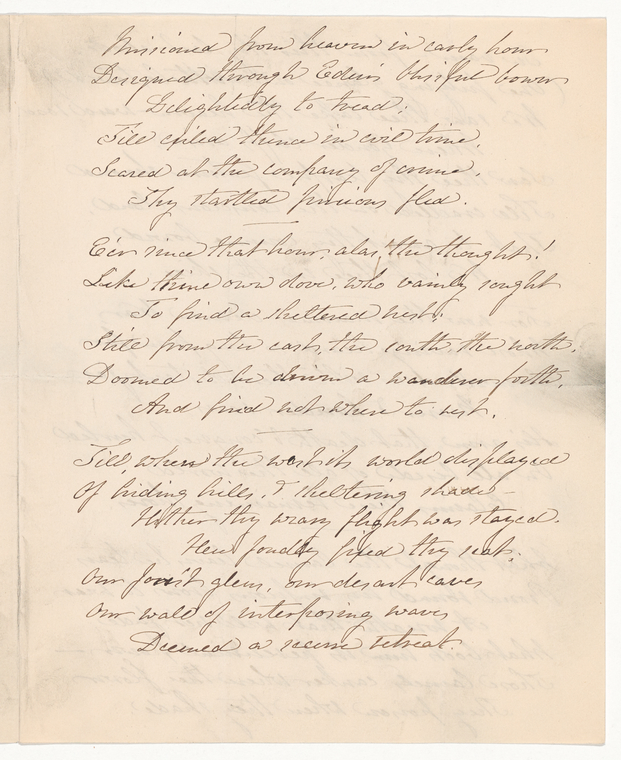 Missioned from heaven in early hour
Designed through Eden's blissful bower
Delightedly to tread;
Till exiled thence in evil time,
Scared at the company of crime,
Thy startled pinions fled.
E'er since that hour, alas, the thought!
Like thine own dove, who vainly sought
To find a sheltered nest;
Still from the east, the south, the north,
Doomed to be driven a wanderer forth,
And find not where to rest.
Till where the west its world displayed
Of hiding hills, & sheltering shade—
Hither thy weary flight was stayed.
Here fondly fixed thy seat;
Our forest glens, our desart caves
Our wall of interposing waves
Deemed a secure retreat.